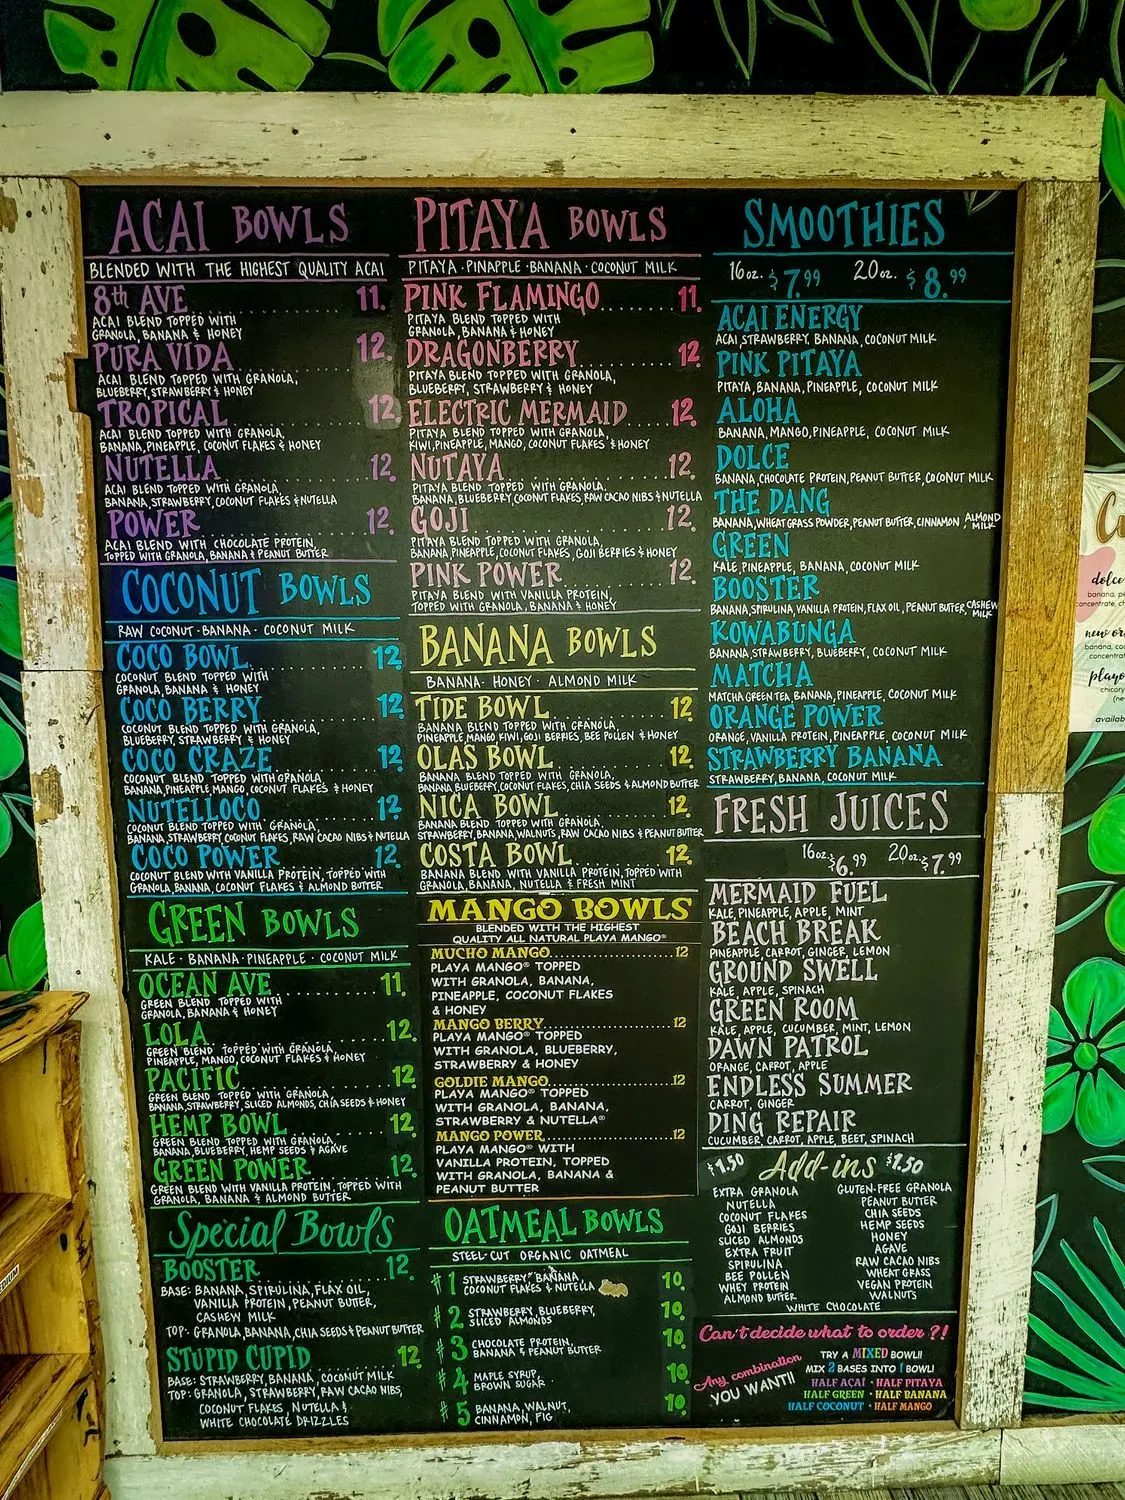 ACAI BOWLS
BLENDED WITH THE HIGHEST QUALITY ACAI
8th AVE 11.
ACAI BLEND TOPPED WITH
GRANOLA, BANANA & HONEY
PURA VIDA 12.
ACAI BLEND TOPPED WITH GRANOLA,
BLUEBERRY, STRAWBERRY & HONEY
TROPICAL 12.
ACAI BLEND TOPPED WITH GRANOLA,
BANANA, PINEAPPLE, COCONUT FLAKES & HONEY
NUTELLA 12.
ACAI BLEND TOPPED WITH GRANOLA,
BANANA, STRAWBERRY, COCONUT FLAKES & NUTELLA
POWER 12.
ACAI BLEND WITH CHOCOLATE PROTEIN,
TOPPED WITH GRANOLA, BANANA & PEANUT BUTTER
COCONUT BOWLS
RAW COCONUT · BANANA · COCONUT MILK
COCO BOWL 12.
COCONUT BLEND TOPPED WITH
GRANOLA, BANANA & HONEY
COCO BERRY 12.
COCONUT BLEND TOPPED WITH GRANOLA,
BLUEBERRY, STRAWBERRY & HONEY
COCO CRAZE 12.
COCONUT BLEND TOPPED WITH GRANOLA,
BANANA, PINEAPPLE, MANGO, COCONUT FLAKES & HONEY
NUTELLOCO 12.
COCONUT BLEND TOPPED WITH GRANOLA,
BANANA, STRAWBERRY, COCONUT FLAKES, RAW CACAO NIBS & NUTELLA
COCO POWER 12.
COCONUT BLEND WITH VANILLA PROTEIN, TOPPED WITH
GRANOLA, BANANA, COCONUT FLAKES & ALMOND BUTTER
GREEN BOWLS
KALE · BANANA · PINEAPPLE · COCONUT MILK
OCEAN AVE 11.
GREEN BLEND TOPPED WITH
GRANOLA, BANANA & HONEY
LOLA 12.
GREEN BLEND TOPPED WITH GRANOLA,
PINEAPPLE, MANGO, COCONUT FLAKES & HONEY
PACIFIC 12.
GREEN BLEND TOPPED WITH GRANOLA,
BANANA, STRAWBERRY, SLICED ALMONDS, CHIA SEEDS & HONEY
HEMP BOWL 12.
GREEN BLEND TOPPED WITH GRANOLA,
BANANA, BLUEBERRY, HEMP SEEDS & AGAVE
GREEN POWER 12.
GREEN BLEND WITH VANILLA PROTEIN, TOPPED WITH
GRANOLA, BANANA & ALMOND BUTTER
Special Bowls
BOOSTER 12.
BASE: BANANA, SPIRULINA, FLAX OIL,
VANILLA PROTEIN, PEANUT BUTTER,
CASHEW MILK
TOP: GRANOLA, BANANA, CHIA SEEDS & PEANUT BUTTER
STUPID CUPID 12.
BASE: STRAWBERRY, BANANA, COCONUT MILK
TOP: GRANOLA, STRAWBERRY, RAW CACAO NIBS,
COCONUT FLAKES, NUTELLA &
WHITE CHOCOLATE DRIZZLES
PITAYA BOWLS
PITAYA · PINAPPLE · BANANA · COCONUT MILK
PINK FLAMINGO 11.
PITAYA BLEND TOPPED WITH
GRANOLA, BANANA & HONEY
DRAGONBERRY 12.
PITAYA BLEND TOPPED WITH GRANOLA,
BLUEBERRY, STRAWBERRY & HONEY
ELECTRIC MERMAID 12.
PITAYA BLEND TOPPED WITH GRANOLA,
KIWI, PINEAPPLE, MANGO, COCONUT FLAKES & HONEY
NUTAYA 12.
PITAYA BLEND TOPPED WITH GRANOLA,
BANANA, BLUEBERRY, COCONUT FLAKES, RAW CACAO NIBS & NUTELLA
GOJI 12.
PITAYA BLEND TOPPED WITH GRANOLA,
BANANA, PINEAPPLE, COCONUT FLAKES, GOJI BERRIES & HONEY
PINK POWER 12.
PITAYA BLEND WITH VANILLA PROTEIN,
TOPPED WITH GRANOLA, BANANA & HONEY
BANANA BOWLS
BANANA · HONEY · ALMOND MILK
TIDE BOWL 12.
BANANA BLEND TOPPED WITH GRANOLA,
PINEAPPLE, MANGO KIWI, GOJI BERRIES, BEE POLLEN & HONEY
OLAS BOWL 12.
BANANA BLEND TOPPED WITH GRANOLA,
BANANA, BLUEBERRY, COCONUT FLAKES, CHIA SEEDS & ALMOND BUTTER
NICA BOWL 12.
BANANA BLEND TOPPED WITH GRANOLA,
STRAWBERRY, BANANA, WALNUTS, RAW CACAO NIBS & PEANUT BUTTER
COSTA BOWL 12.
BANANA BLEND WITH VANILLA PROTEIN, TOPPED WITH
GRANOLA, BANANA, NUTELLA & FRESH MINT
MANGO BOWLS
BLENDED WITH THE HIGHEST
QUALITY ALL NATURAL PLAYA MANGO®
MUCHO MANGO 12
PLAYA MANGO® TOPPED
WITH GRANOLA, BANANA,
PINEAPPLE, COCONUT FLAKES
& HONEY
MANGO BERRY 12
PLAYA MANGO® TOPPED
WITH GRANOLA, BLUEBERRY,
STRAWBERRY & HONEY
GOLDIE MANGO 12
PLAYA MANGO® TOPPED
WITH GRANOLA, BANANA,
STRAWBERRY & NUTELLA®
MANGO POWER 12
PLAYA MANGO® WITH
VANILLA PROTEIN, TOPPED
WITH GRANOLA, BANANA &
PEANUT BUTTER
OATMEAL BOWLS
STEEL-CUT ORGANIC OATMEAL
#1 STRAWBERRY, BANANA, 10.
COCONUT FLAKES & NUTELLA
#2 STRAWBERRY, BLUEBERRY, 10.
SLICED ALMONDS
#3 CHOCOLATE PROTEIN, 10.
BANANA & PEANUT BUTTER
#4 MAPLE SYRUP, 10.
BROWN SUGAR
#5 BANANA, WALNUT, 10.
CINNAMON, FIG
SMOOTHIES
16oz. $7.99 20oz. $8.99
ACAI ENERGY
ACAI, STRAWBERRY, BANANA, COCONUT MILK
PINK PITAYA
PITAYA, BANANA, PINEAPPLE, COCONUT MILK
ALOHA
BANANA, MANGO, PINEAPPLE, COCONUT MILK
DOLCE
BANANA, CHOCOLATE PROTEIN, PEANUT BUTTER, COCONUT MILK
THE DANG
BANANA, WHEATGRASS POWDER, PEANUT BUTTER, CINNAMON, ALMOND MILK
GREEN
KALE, PINEAPPLE, BANANA, COCONUT MILK
BOOSTER
BANANA, SPIRULINA, VANILLA PROTEIN, FLAX OIL, PEANUT BUTTER, CASHEW MILK
KOWABUNGA
BANANA, STRAWBERRY, BLUEBERRY, COCONUT MILK
MATCHA
MATCHA GREEN TEA, BANANA, PINEAPPLE, COCONUT MILK
ORANGE POWER
ORANGE, VANILLA PROTEIN, PINEAPPLE, COCONUT MILK
STRAWBERRY BANANA
STRAWBERRY, BANANA, COCONUT MILK
FRESH JUICES
16oz. $6.99 20oz. $7.99
MERMAID FUEL
KALE, PINEAPPLE, APPLE, MINT
BEACH BREAK
PINEAPPLE, CARROT, GINGER, LEMON
GROUND SWELL
KALE, APPLE, SPINACH
GREEN ROOM
KALE, APPLE, CUCUMBER, MINT, LEMON
DAWN PATROL
ORANGE, CARROT, APPLE
ENDLESS SUMMER
CARROT, GINGER
DING REPAIR
CUCUMBER, CARROT, APPLE, BEET, SPINACH
$1.50 Add-ins $1.50
EXTRA GRANOLA
NUTELLA
COCONUT FLAKES
GOJI BERRIES
SLICED ALMONDS
EXTRA FRUIT
SPIRULINA
BEE POLLEN
WHEY PROTEIN
ALMOND BUTTER
GLUTEN-FREE GRANOLA
PEANUT BUTTER
CHIA SEEDS
HEMP SEEDS
HONEY
AGAVE
RAW CACAO NIBS
WHEAT GRASS
VEGAN PROTEIN
WALNUTS
WHITE CHOCOLATE
Can't decide what to order?!
Any combination
YOU WANT!!
TRY A MIXED BOWL!!
MIX 2 BASES INTO 1 BOWL!
HALF ACAI · HALF PITAYA
HALF GREEN · HALF BANANA
HALF COCONUT · HALF MANGO
dolce